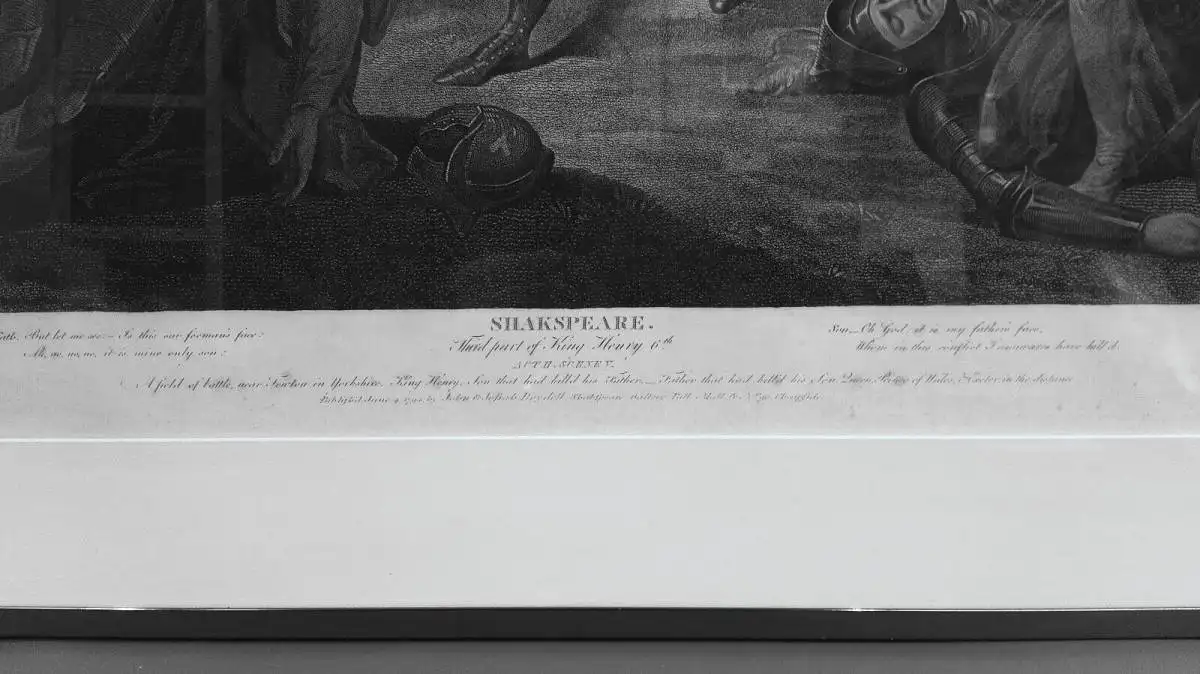 SHAKSPEARE.
Third part of King Henry 6th
ACT II. SCENE V.
Fath. But let me see:— Is this our foeman's face?
Ah, no, no, no, it is mine only son!
Son.— Oh God! it is my father's face,
Whom in this conflict I unawares have kill'd.
A field of battle, near Towton in Yorkshire. King Henry, Son that had kill'd his Father.— Father that had kill'd his Son. Queen, Prince of Wales, & Exeter in the distance
Publish'd June 4, by John & Josiah Boydell Shakspeare Gallery Pall Mall & No. 90, Cheapside